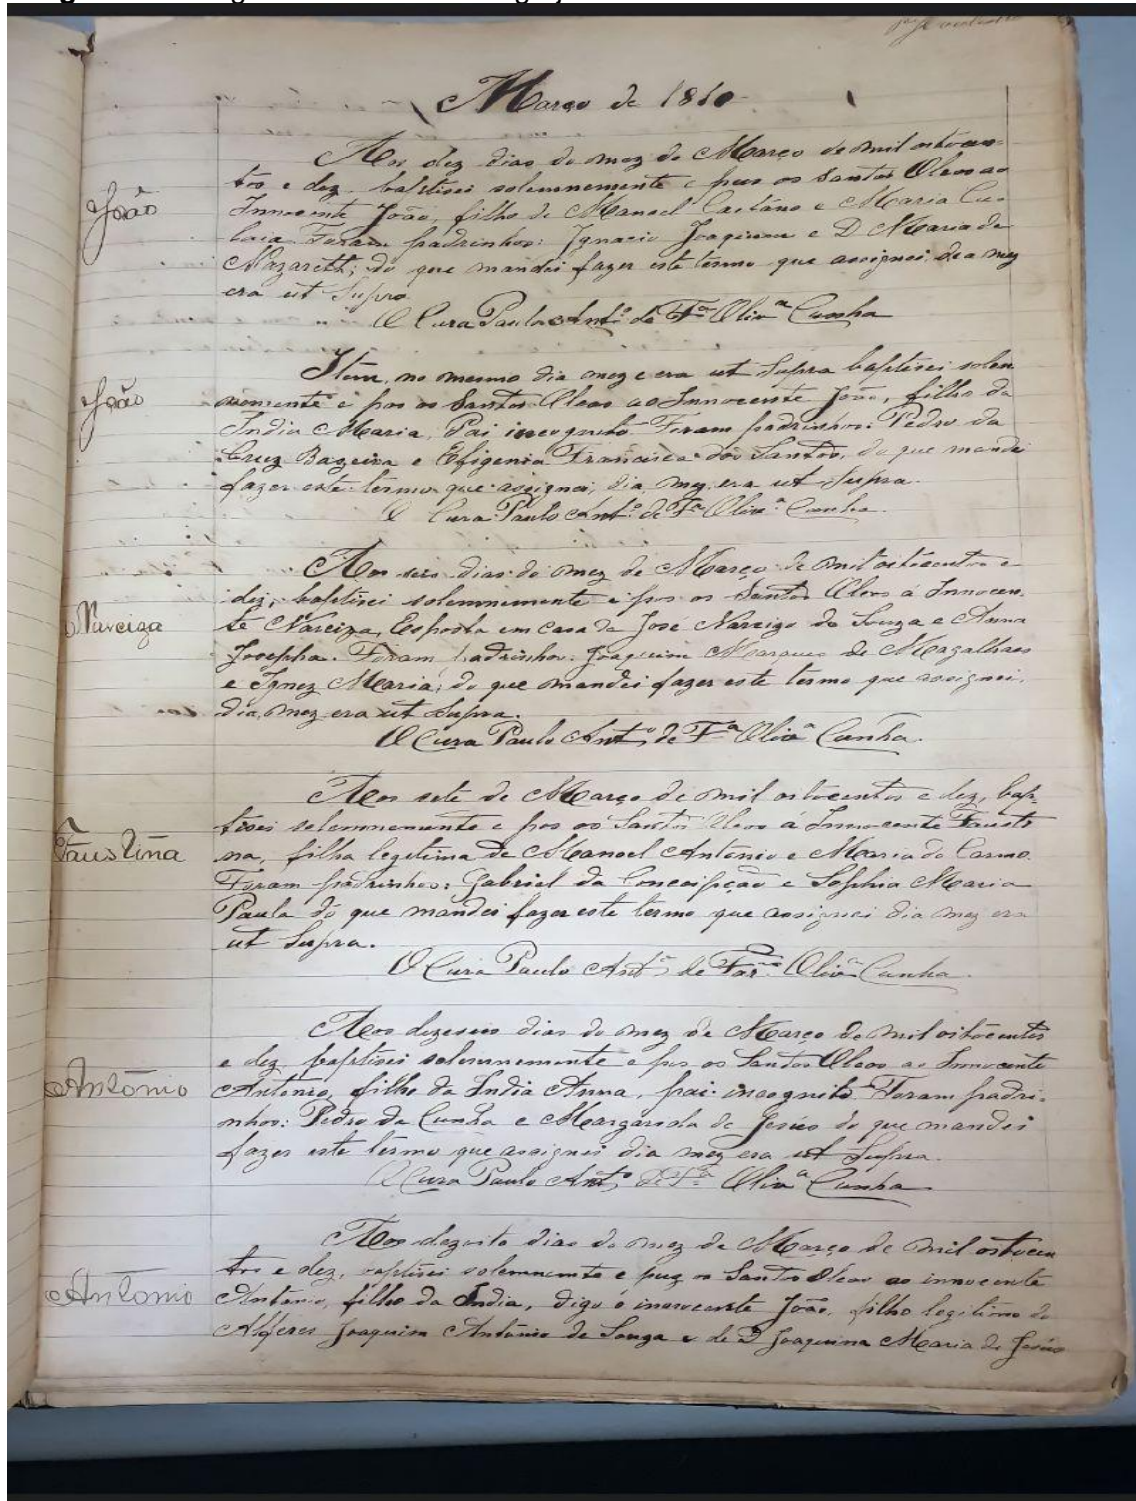 Março de 1810
Aos dez dias do mez de Março de mil oitocen-
tos e dez baptisei solemnemente e pus os Santos Oleos ao
João
Innocente João, filho de Manoel Caetano e Maria
Foram padrinhos: Ignacio Joaquim e D Maria de
Nazareth; do que mandei fazer este termo que assignei, dia mez
era ut Supra
O Cura Paulo Antº de Fª Olivª Cunha
Item, no mesmo dia mez e era ut Supra baptisei solem
João
nemente e pus os Santos Oleos ao Innocente João, filho da
India Maria, Pai incognito Foram padrinhos: Pedro da
Cruz Bazeira e Efigenia Francisca dos Santos, do que mandei
fazer este termo que assignei, dia mez era ut Supra.
O Cura Paulo Antº de Fª Olivª Cunha.
Aos seis dias do mez de Março de mil oitocentos e
dez, baptisei solemnemente e pus os Santos Oleos á Innocen-
Narciza
te Narciza, Exposta em casa de José Narcizo de Souza e Anna
Josepha. Foram padrinhos: Joaquim Marques de Magalhaes
e Ignez Maria; do que mandei fazer este termo que assignei,
dia, mez era ut Supra.
O Cura Paulo Antº de Fª Olivª Cunha.
Aos sete de Março de mil oitocentos e dez, bap-
tisei solemnemente e pus os Santos Oleos á Innocente Fausti
Faustina
na, filha legitima de Manoel Antonio e Maria do Carmo.
Foram padrinhos: Gabriel da Conceipção e Sophia Maria
Paula do que mandei fazer este termo que assignei dia mez era
ut Supra.
O Cura Paulo Antº de Farª Olivª Cunha.
Aos dezeseis dias do mez de Março de mil oitocentos
e dez baptisei solemnemente e pus os Santos Oleos ao Innocente
Antônio
Antonio, filho da India Anna, pai incognito. Foram padri-
nhos: Pedro da Cunha e Margarida de Jesús do que mandei
fazer este termo que assignei dia mez era ut Supra.
O Cura Paulo Antº de Fª Olivª Cunha
Aos dezoito dias do mez de Março de mil oitocen
tos e dez, baptisei solemnemente e puz os Santos Oleos ao innocente
Antonio
Antonio, filho da India, digo o innocente João, filho legitimo do
Alferes Joaquim Antônio de Souza e de D Joaquina Maria de Jesús